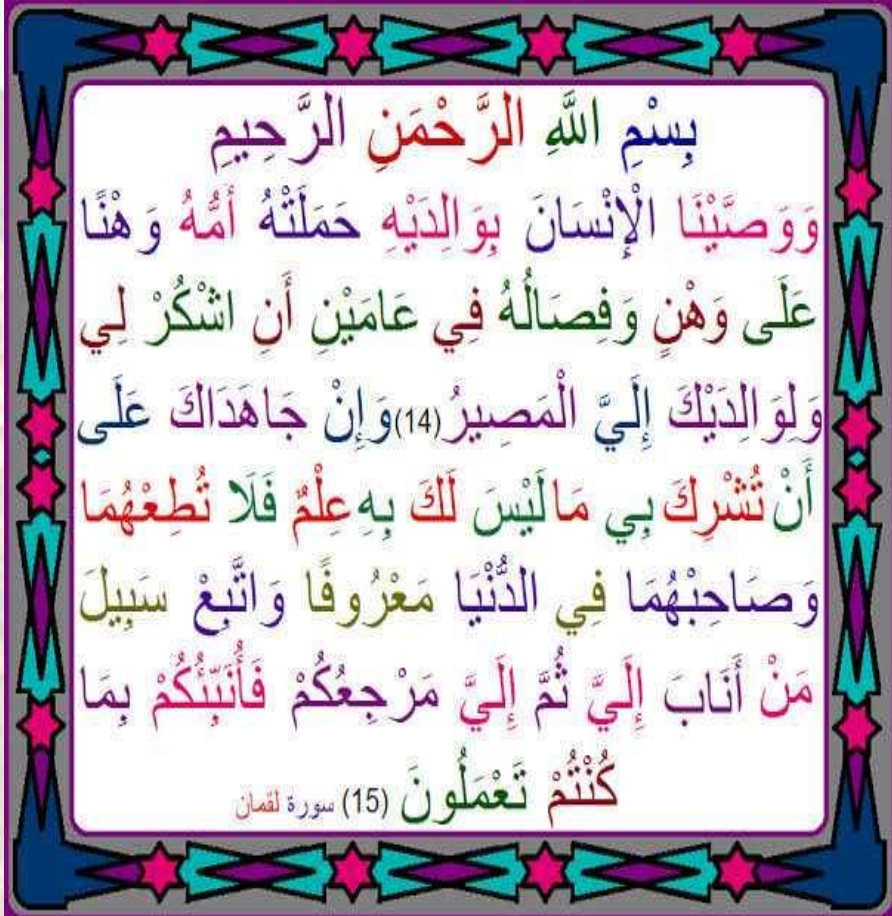 بِسْمِ اللَّهِ الرَّحْمَنِ الرَّحِيمِ
وَوَصَّيْنَا الْإِنْسَانَ بِوَالِدَيْهِ حَمَلَتْهُ أُمُّهُ وَهْنًا
عَلَى وَهْنٍ وَفِصَالُهُ فِي عَامَيْنِ أَنِ اشْكُرْ لِي
وَلِوَالِدَيْكَ إِلَيَّ الْمَصِيرُ(14)وَإِنْ جَاهَدَاكَ عَلَى
أَنْ تُشْرِكَ بِي مَا لَيْسَ لَكَ بِهِ عِلْمٌ فَلَا تُطِعْهُمَا
وَصَاحِبْهُمَا فِي الدُّنْيَا مَعْرُوفًا وَاتَّبِعْ سَبِيلَ
مَنْ أَنَابَ إِلَيَّ ثُمَّ إِلَيَّ مَرْجِعُكُمْ فَأُنَبِّئُكُمْ بِمَا
كُنْتُمْ تَعْمَلُونَ (15) سورة لقمان